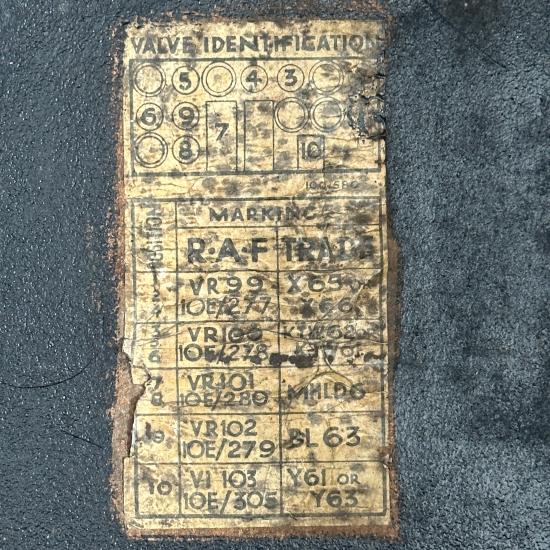 VALVE IDENTIFICATION
5 4 3
6 9
7
8 10
MARKING
R.A.F TRADE
VR99 X65 OR
10E/277 X66
VR100
10E/278
7 VR101 MHLD6
8 10E/280
VR102 BL 63
10E/279
10 VI 103 Y61 OR
10E/305 Y63